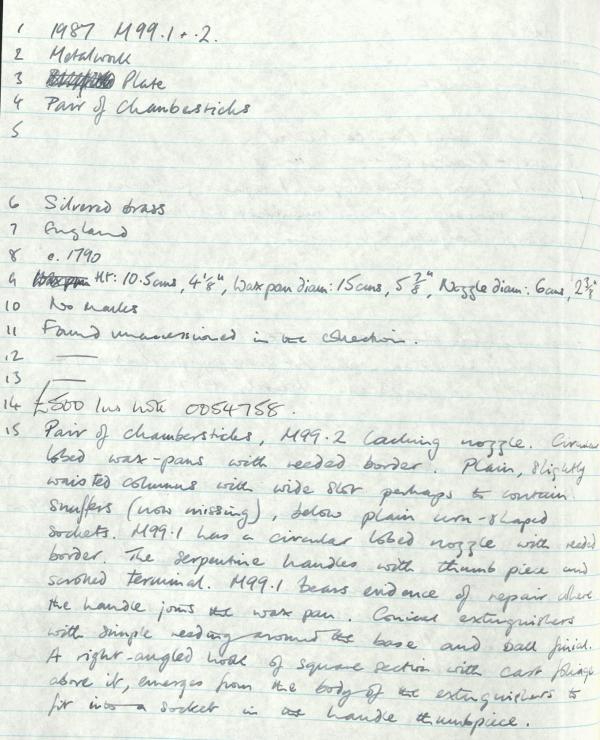 1 1987 M99.1+.2.
2 Metalwork
3 Plate
4 Pair of chambersticks
5
6 Silvered brass
7 England
8 c. 1790
9 Ht: 10.5cms, 4 1/8", Wax pan diam: 15cms, 5 7/8", Nozzle diam: 6cms, 2 3/8"
10 No marks
11 Found unaccessioned in the collection.
12 —
13 —
14 £500 Ins. note 0054758.
15 Pair of chambersticks, M99.2 lacking nozzle. Circular
lobed wax-pans with reeded border. Plain, slightly
waisted columns with wide slot perhaps to contain
snuffers (now missing), below plain urn-shaped
sockets. M99.1 has a circular lobed nozzle with reeded
border. The serpentine handles with thumb piece and
scrolled terminal. M99.1 bears evidence of repair where
the handle joins the wax pan. Conical extinguishers
with simple reeding around the base and ball finial.
A right-angled hook of square section with cast foliage
above it, emerges from the body of the extinguishers to
fit into a socket in the handle thumbpiece.